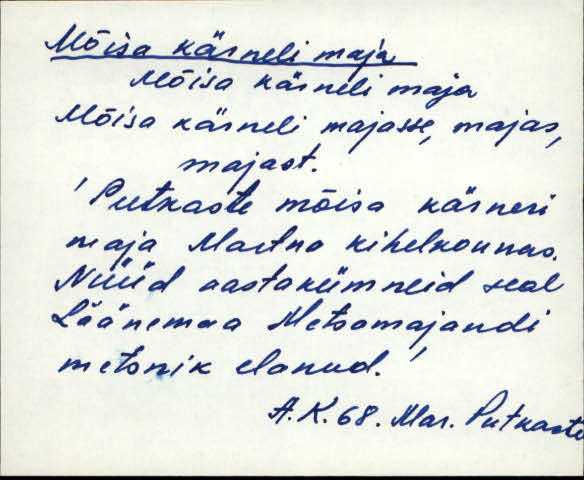 Mõisa kärneli maja
Mõisa kärneli maja
Mõisa kärneli majasse, majas,
majast.
'Putkaste mõisa kärneri
maja Martna kihelkonnas.
Nüüd aastakümneid seal
Läänemaa Metsamajandi
metsnik elanud.'
A. K. 68. Mar. Putkaste